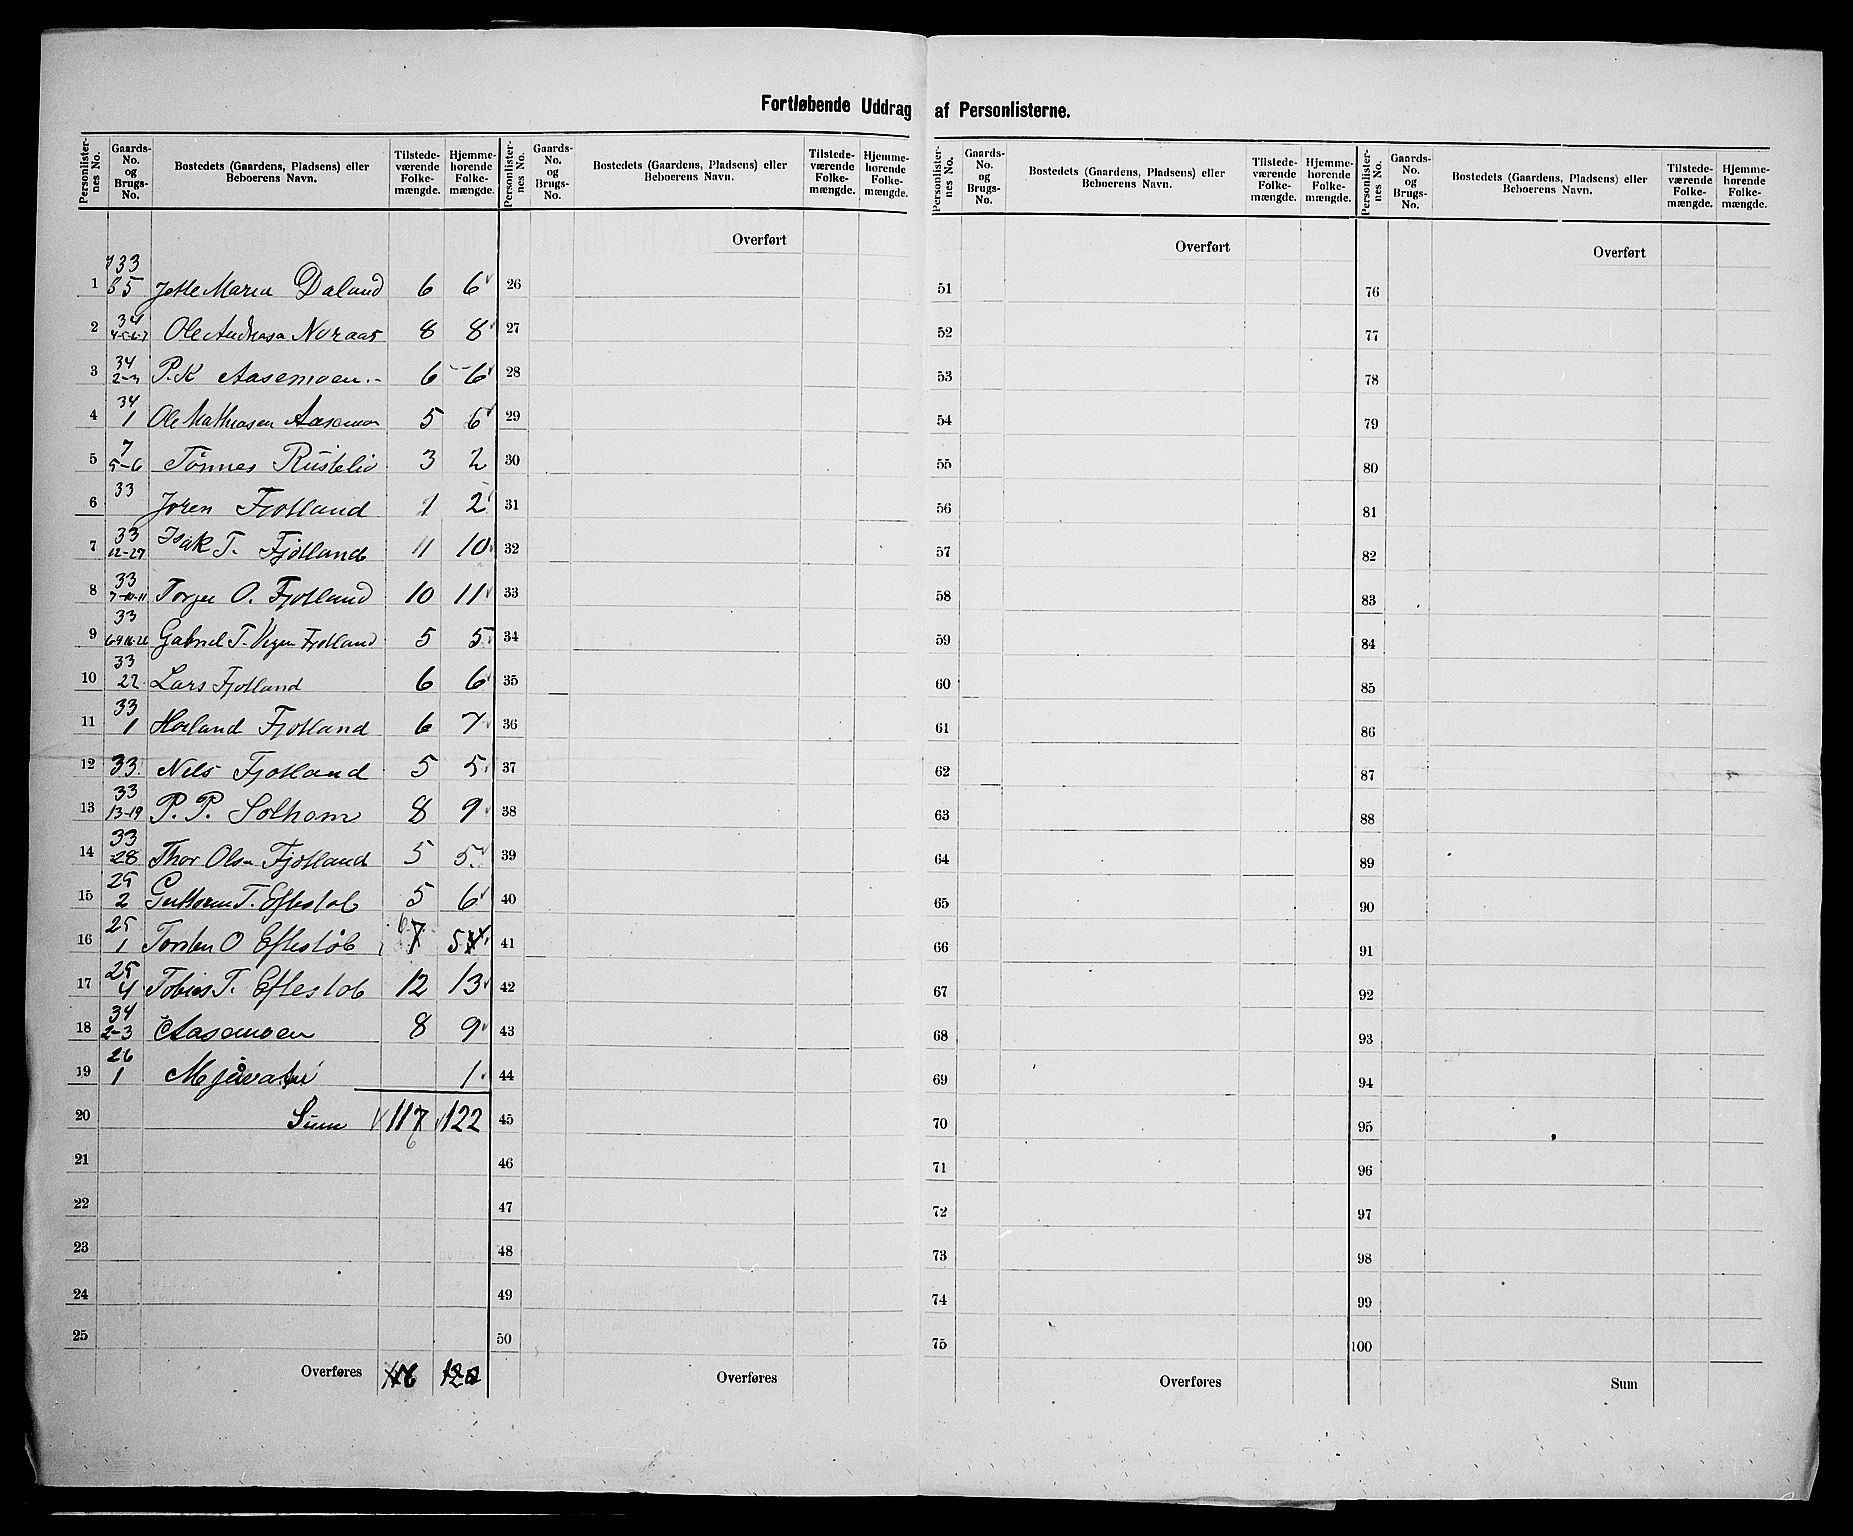 Fortløbende Uddrag af Personlisterne.
Personlisternes No. Gaards-No. og Brugs-No. Bostedets (Gaardens, Pladsens) eller Beboerens Navn. Tilstedeværende Folkemængde. Hjemmehørende Folkemængde.
Personlisternes No. Gaards-No. og Brugs-No. Bostedets (Gaardens, Pladsens) eller Beboerens Navn. Tilstedeværende Folkemængde. Hjemmehørende Folkemængde.
Personlisternes No. Gaards-No. og Brugs-No. Bostedets (Gaardens, Pladsens) eller Beboerens Navn. Tilstedeværende Folkemængde. Hjemmehørende Folkemængde.
Personlisternes No. Gaards-No. og Brugs-No. Bostedets (Gaardens, Pladsens) eller Beboerens Navn. Tilstedeværende Folkemængde. Hjemmehørende Folkemængde.
Overført Overført Overført
1 33 Maria Daland 6 6 26 51 76
2 34 4-5-6-7 Ole Noraas 8 8 27 52 77
3 34 2-3 P. K Aasemoen 6 6 28 53 78
4 34 1 Ole Mathiasen 5 6 29 54 79
5 7 5-6 Tønnes 3 2 30 55 80
6 33 Joren Fjotland 1 2 31 56 81
7 33 12-27 Isak T. Fjotland 11 10 32 57 82
8 33 7-10-11 O. Fjotland 10 11 33 58 83
9 33 Gabriel T. Fjotland 5 5 34 59 84
10 33 22 Lars Fjotland 6 6 35 60 85
11 33 1 Fjotland 6 7 36 61 86
12 33 Nels Fjotland 5 5 37 62 87
13 33 13-19 P. P. Solhom 8 9 38 63 88
14 33 28 Thor Olsn Fjotland 5 5 39 64 89
15 25 2 T. Eftestøl 5 6 40 65 90
16 25 1 O Eftestøl 7 5 41 66 91
17 25 4 Tobias T. Eftestøl 12 13 42 67 92
18 34 2-3 Aasemoen 8 9 43 68 93
19 26 1 1 44 69 94
20 Sum 117 6 122 45 70 95
21 46 71 96
22 47 72 97
23 48 73 98
24 49 74 99
25 50 75 100
Overføres 116 122 Overføres Overføres Sum